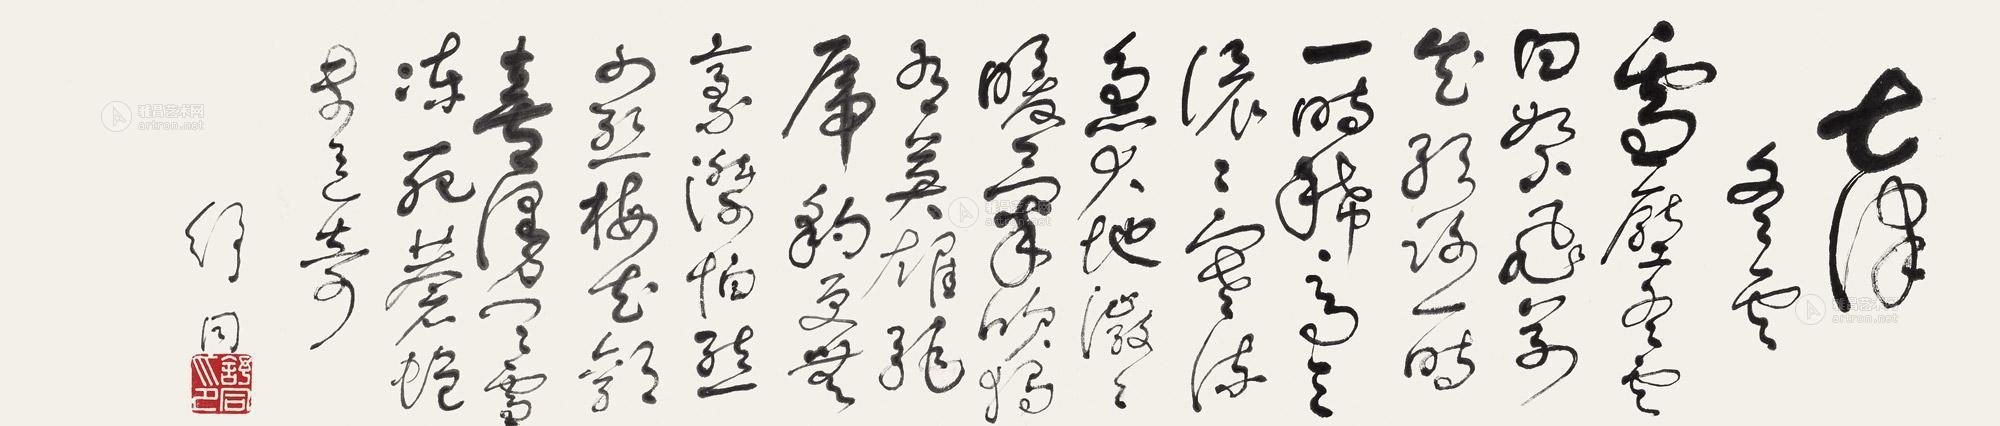 七律
冬云
雪压冬云
白絮飞万
花纷谢一时
一时稀高天
滚滚寒流
急大地微微
暖气吹独
有英雄驱
虎豹更无
豪杰怕熊
罴梅花欢
喜漫天雪
冻死苍蝇
未足奇
舒同
舒同之印
雅昌艺术网
artron.net